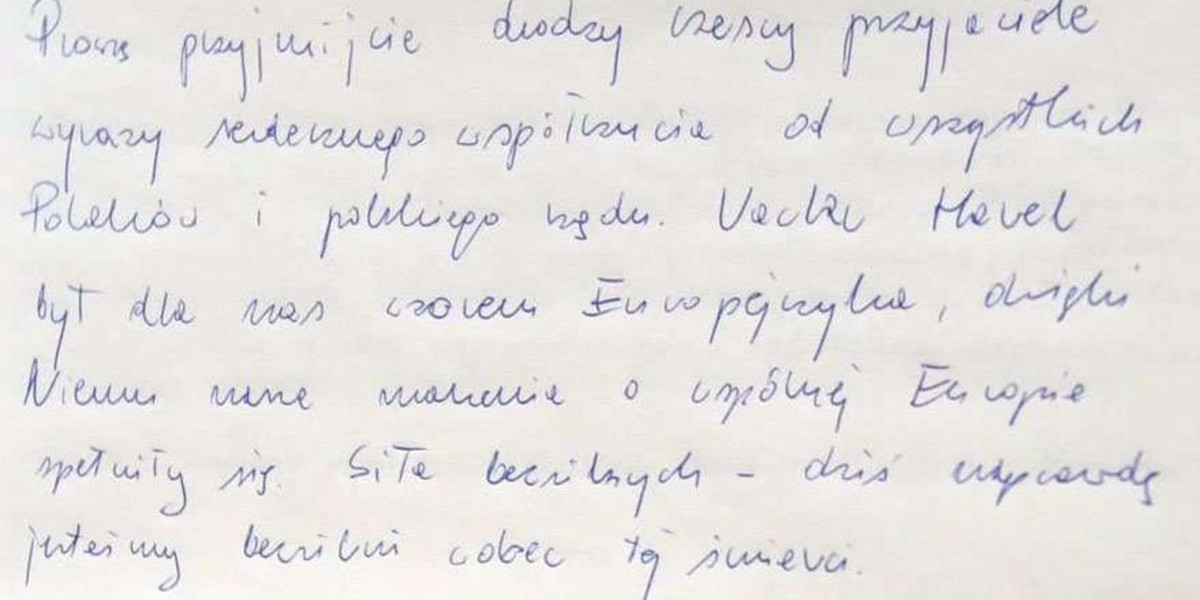 Proszę przyjmijcie drodzy czescy przyjaciele
wyrazy serdecznego współczucia od wszystkich
Polaków i polskiego rządu. Vaclav Havel
był dla nas wzorem Europejczyka, dzięki
Niemu nasze marzenia o wspólnej Europie
spełniły się. Siła bezsilnych - dziś naprawdę
jesteśmy bezsilni wobec tej śmierci.